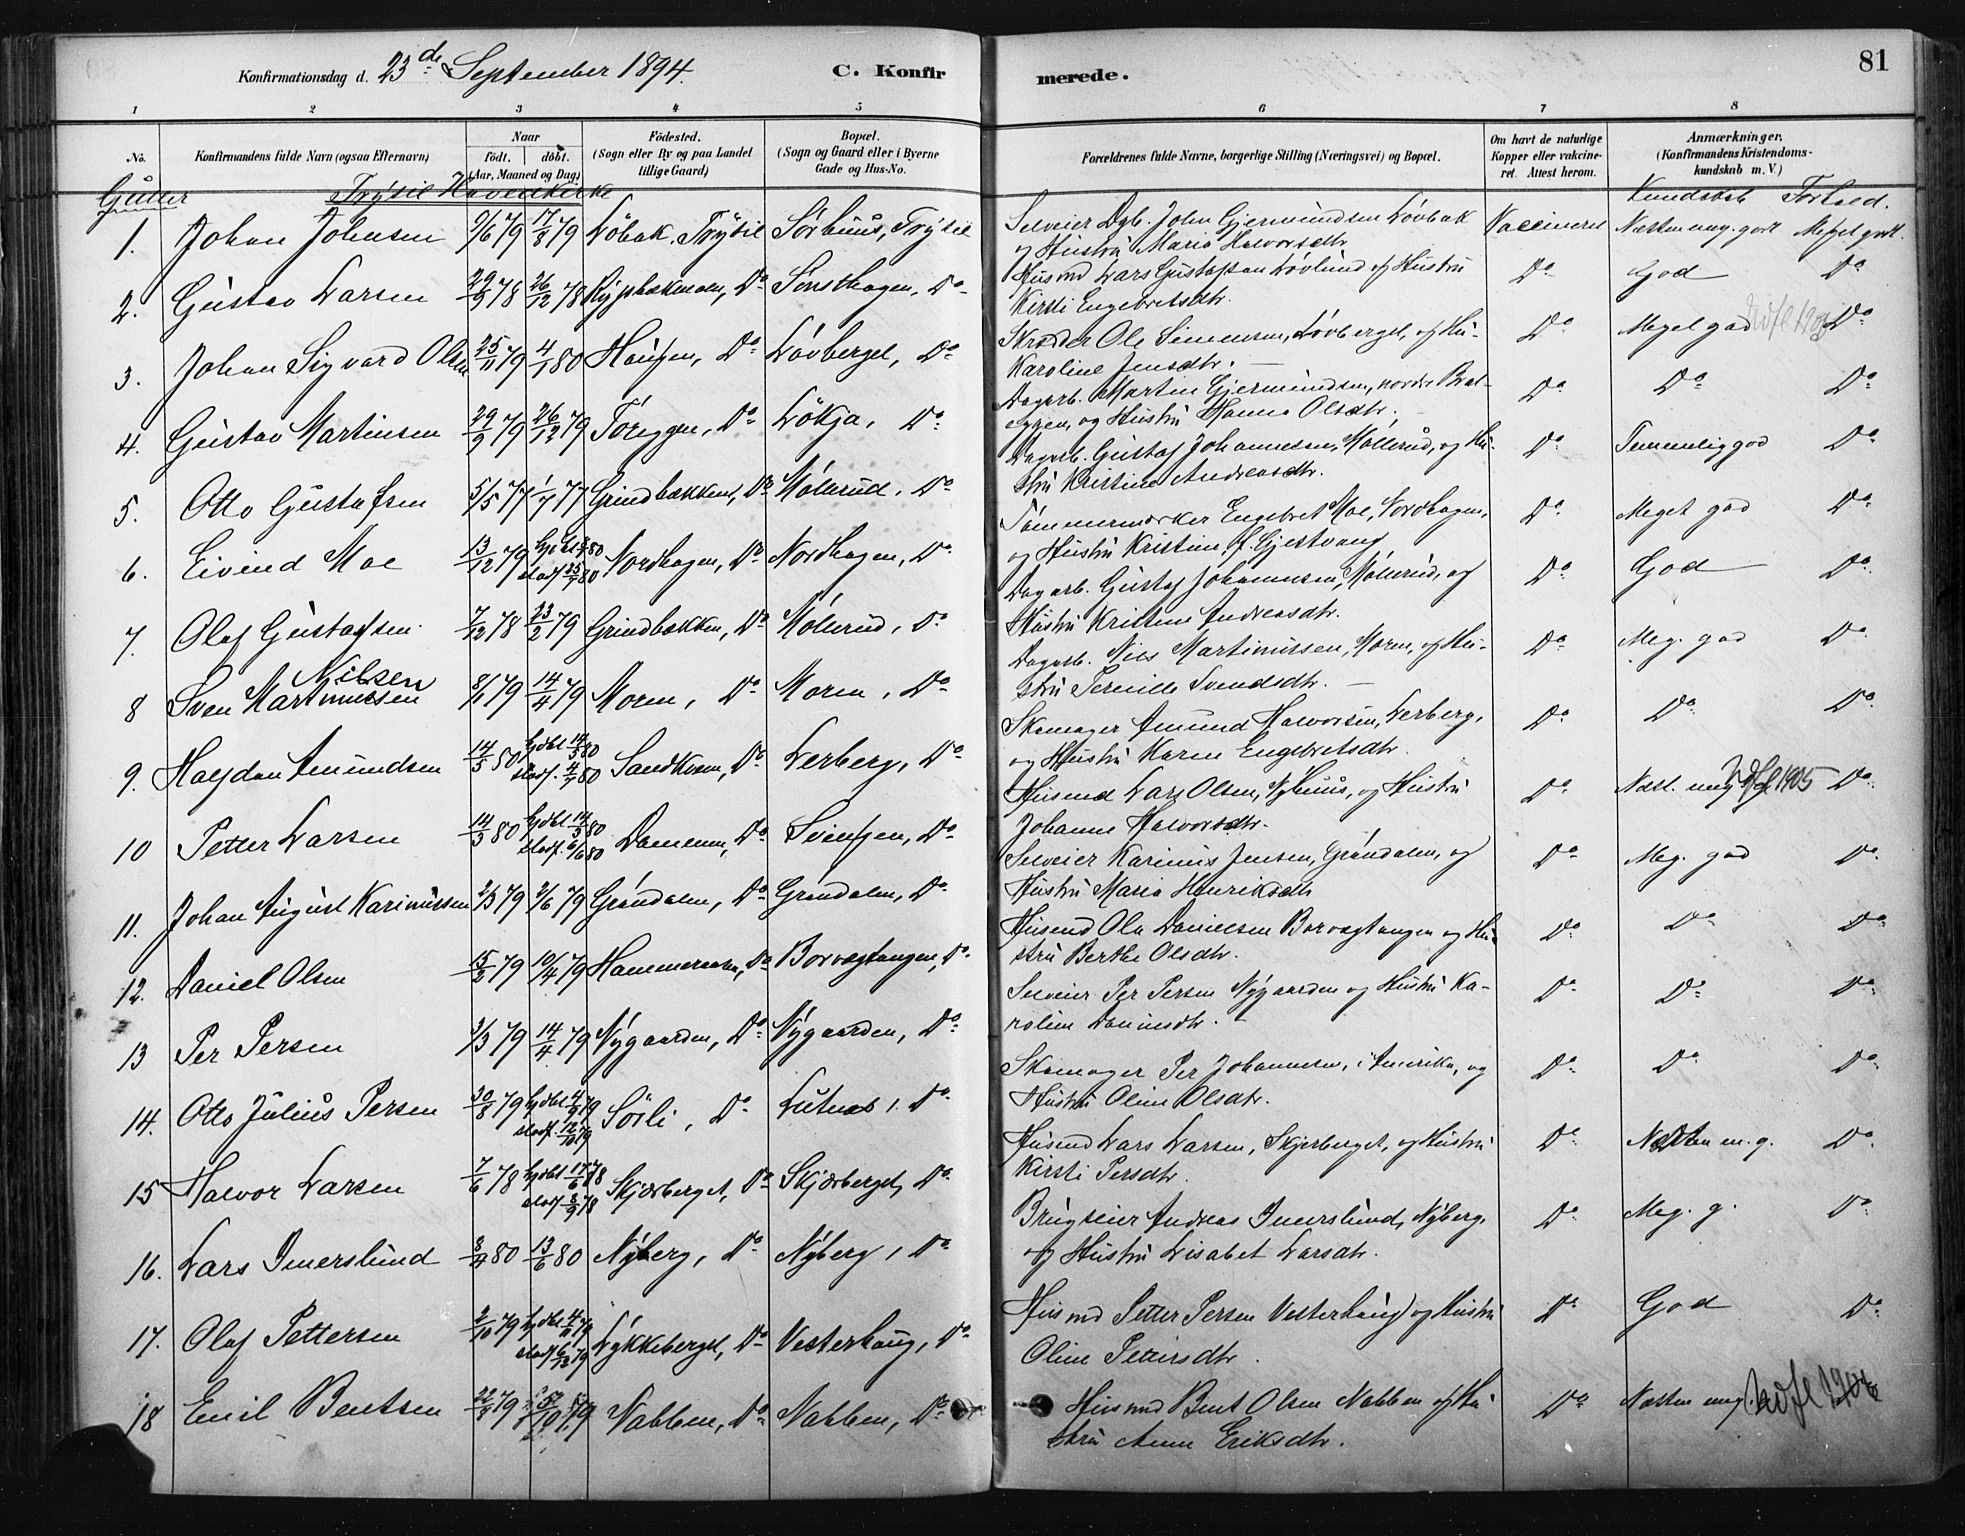 Konfirmationsdag d. 23de September 1894. C. Konfirmerede. 81
1 2 3 4 5 6 7 8
No. Konfirmandens fulde Navn (ogsaa Efternavn) Naar født. døbt. (Aar, Maaned og Dag) Fødested. (Sogn eller By og paa Landet tillige Gaard) Bopæl. (Sogn og Gaard eller i Byerne Gade og Hus-No.) Forældrenes fulde Navne, borgerlige Stilling (Næringsvei) og Bopæl. Om havt de naturlige Kopper eller vakcineret. Attest herom. Anmærkninger. (Konfirmandens Kristendomskundskab m. V.)
Gutter Trysil Hovedkirke Kundskab Forhold.
1. Johan Johnsen 9/6 79 17/8 79 Løbak, Trysil Sørhuus, Trysil Selveier Dgb. John Gjermundsen Løvbak Vaccineret Næsten meg. godt Meget godt.
og Hustru Maria Halvorsdtr.
2. Gustav Larsen 29/9 78 26/12 78 Do Sønsthagen, Do Husmd Lars Gustafsen Løvlund og Hustru Do God Do
Kirsti Engebretsdtr.
3. Johan Sigvard Olsen 25/11 79 4/1 80 Haugen, Do Løvberget, Do Skrædder Ole Simensen, Løvberget, og Hu- Do Meget god Do
Karoline Jensdtr.
4. Gustav Martinsen 29/9 79 26/12 79 Do Løkja, Do Dagarb. Martin Gjermundsen, nordre Brat- Do Do Do
eggen, og Hustru Hanna Olsdtr.
5. Otto Gustafsen 5/5 77 1/7 77 Grindbækken, Do Mølerud, Do Dagarb. Gustaf Johannesen, Møllerud, og Hu- Do Temmelig god Do
stru Kristine Andreasdtr.
6. Eivind Moe 13/12 79 hjdbt 80 stadf. 80 Nordhagen, Do Nordhagen, Do Tømmermærker Engebret Moe, Nordhagen, Do Meget god Do
og Hustru Kristine f. Gjestvang
7. Olaf Gustafsen 7/12 78 23/2 79 Grindbækken, Do Mølerud, Do Dagarb. Gustaf Johannesen, Møllerud, og Do God Do
Hustru Kristine Andreasdtr.
8 Sven Martinussen Nilsen 8/1 79 14/4 79 Moren, Do Moren, Do Dagarb. Nils Martinussen, Moren, og Hu- Do Meg. god Do
stru Pernille Svendsdtr.
9. Halfdan Amundsen 14/3 80 hjdbt 14/3 80 stadf. 4/7 80 Sandkven, Do Lerberg, Do Skomager Amund Halvorsen, Lerberg, Do Do Do
og Hustru Karen Engebretsdtr.
10 Petter Larsen 14/3 80 hjdbt 14/3 80 stadf. 6/6 80 Dammen, Do Do Husmd Lars Olsen, Nyhuus, og Hustru Do Næst. meg. Udfl 1905 Do
Johanne Halvorsdtr.
11. Johan August Karinussen 2/3 79 2/6 79 Grøndalen, Do Grøndalen, Do Selveier Karinus Jensen, Grøndalen, og Do Meg. god Do
Hustru Maria Henriksdtr
12. Daniel Olsen 15/2 79 10/4 79 Do Borvægtangen, Do Husmd Ole Danielsen Borvægtangen og Hu- Do Do Do
stru Berthe Olsdtr.
13 Per Persen 3/3 79 14/4 79 Nygaarden, Do Nygaarden, Do Selveier Per Persen Nygaarden og Hustru Ka- Do Do Do
roline Danielsdtr.
14. Otto Julius Persen 30/8 79 hjdbt 4/9 79 stadf. 12/10 79 Sørli, Do Lutnes, Do Skomager Per Johannesen, i Amerika, og Do Do Do
Hustru Oline Olsdtr.
15 Halvor Larsen 7/6 78 hjdbt 17/6 78 stadf. 8/9 78 Skjærberget, Do Skjærberget, Do Husmd Lars Larsen, Skjerberget, og Hustru Do Næsten m. g. Do
Kirsti Persdtr.
16. Lars Imerslund 8/4 80 13/6 80 Nyberg, Do Nyberg, Do Brugseier Andreas Imerslund, Nyberg, Do Meg. g. Do
og Hustru Lisabet Larsdtr.
17. Olaf Pettersen 2/10 79 hjdbt 4/11 79 stadf. 6/12 79 Lykkeberget, Do Vesterhaug, Do Husmd Petter Persen Vesterhaug og Hustru Do God Do
Oline Pettersdtr.
18 Emil Bentsen 22/8 79 5/10 79 Nabben, Do Nabben, Do Husmd Bent Olsen Nabben og Hu Do Næsten meg.
stru Anne Eriksdtr.